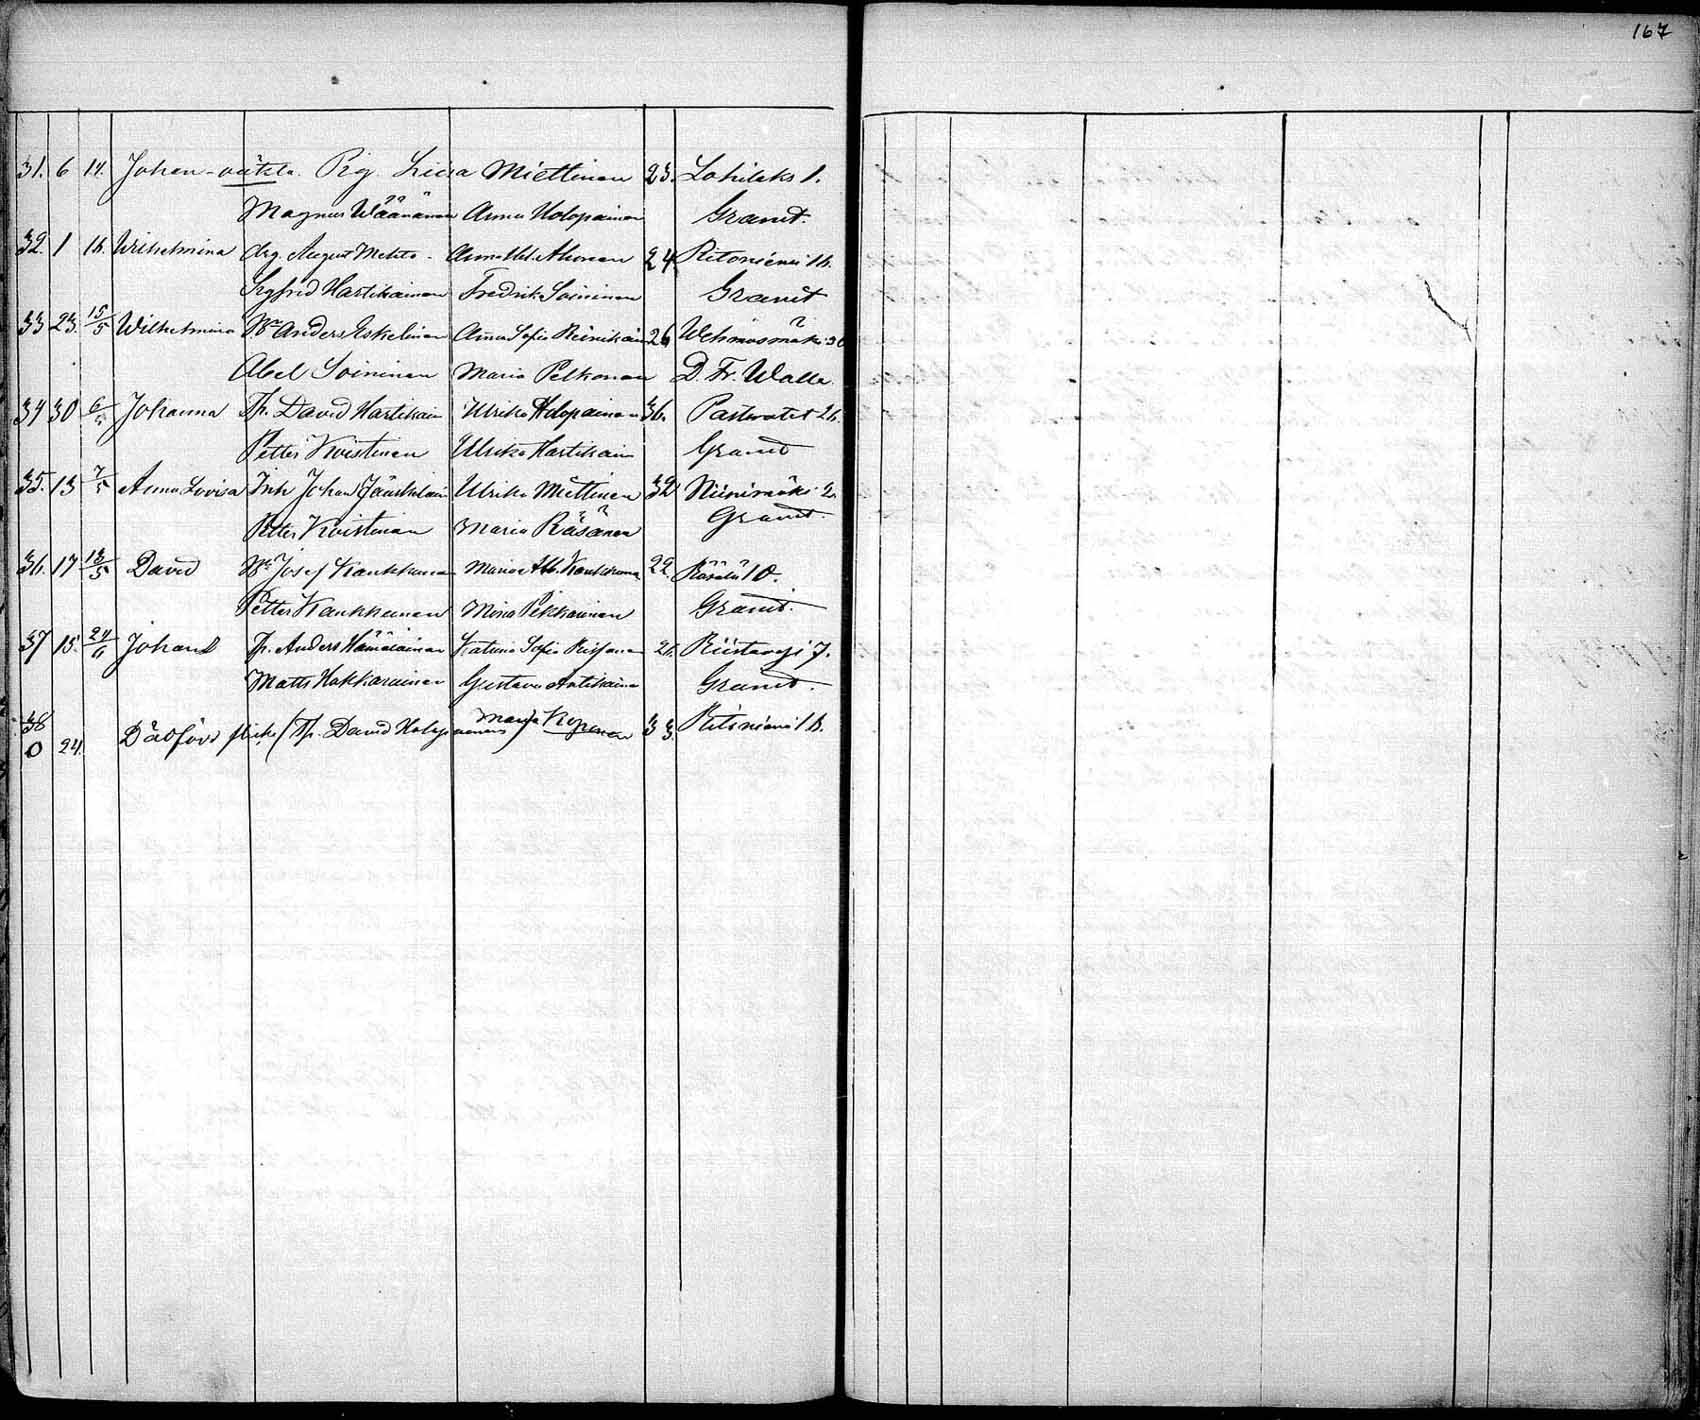 167
31. 6 14. Johan-oäkta. Pig. Liisa Miettinen 23. Lohilaks 1.
Magnus Wäänänen Anna Holopainen Granit.
32. 1 16. Wilhelmina drg. August Mehto - Anna Ahonen 24 Ritoniemi 16.
Sigfrid Hartikainen Fredrik. Soininen Granit
33 23. 15/5 Wilhelmina Bn Anders Eskelinen Anna Sofia Reinikain 26 Wehmasmäki 30
Abel Soininen Maria Pelkonen D. Fr. Walle.
34 30 6/5 Johanna Tp. David Hartikain Ulrika Holopainen 36. Partwatet 26.
Petter Koistinen Ulrika Hartikain Granit
35. 13 7/5 Anna Lovisa Inh Johan Jääskelain Ulrika Miettinen 32 Niinimäki 2.
Petter Koistinen Maria Räsänen Granit.
36. 17 13/5 David Bn Josef Kaukkunen Maria Kaukkunen 22. Räsälä 10.
Petter Kaukkunen Mina Pekkarinen Granit.
37 15. 24/11 Johan Tp. Anders Hämäläinen Katrina Sofia 21. Riistavesi 7.
Matts Hakkarainen Gustava Antikain Granit.
38 0 24. Dödföd flicka (Tp. David Holopainens) Maria Koponen 33. Ritoniemi 16.